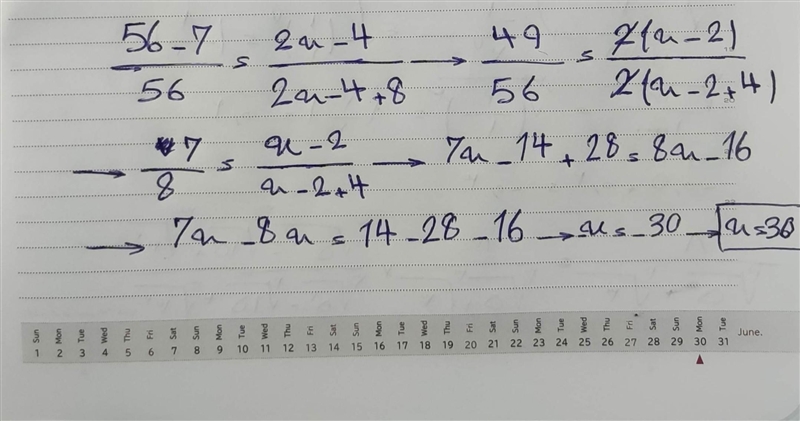 56-7/56 = 2x-4/2x-4+8 → 49/56 = 2(x-2)/2(x-2+4)
→ 7/8 = x-2/x-2+4 → 7x-14+28=8x-16
→ 7x-8x=14-28-16 → -x=-30 → x=30
Sun Mon Tue Wed Thu Fri Sat Sun Mon Tue Wed Thu Fri Sat Sun Mon Tue Wed Thu Fri Sat Sun Mon Tue Wed Thu Fri Sat Sun Mon Tue June.
1 2 3 4 5 6 7 8 9 10 11 12 13 14 15 16 17 18 19 20 21 22 23 24 25 26 27 28 29 30 31